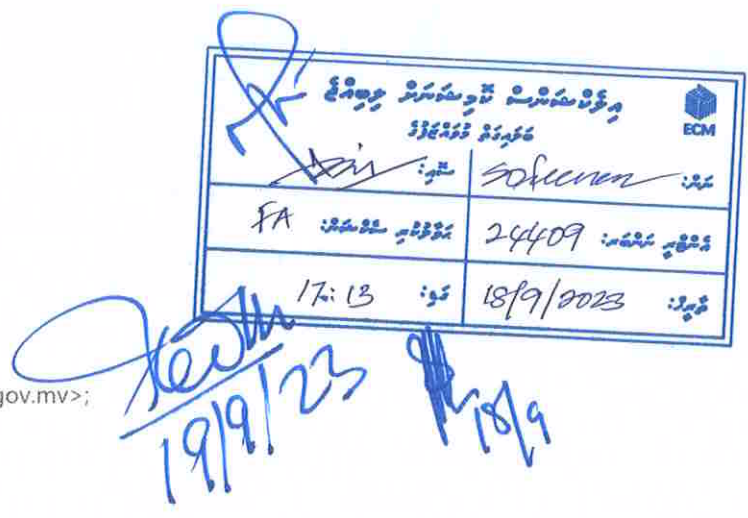 އިލެކްޝަންސް ކޮމިޝަނަށް ލިބިއްޖެ
ECM
ބަލައިގަތް މުވައްޒަފުގެ
ނަން: Sofeenaz ސޮއި:
އެންޓްރީ ނަންބަރ: 24409 ޙަވާލުކުރި ސެކްޝަން: FA
ތާރީޚް: 18/9/2023 ގަޑި: 17:13
gov.mv>;
19/9/23
18/9